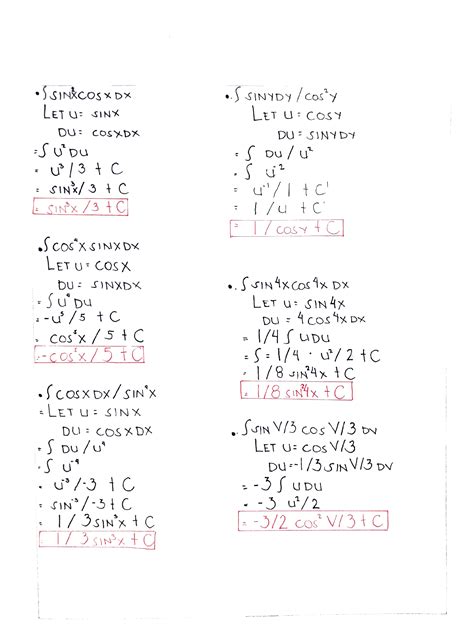 • ∫ SIN²XCOSXDX
LET U = SINX
DU = COSXDX
= ∫ U² DU
= U³/3 + C
= SIN³X/3 + C
= SIN³X/3 + C
• ∫ COS⁴XSINXDX
LET U = COSX
DU = SINXDX
= ∫ U⁴ DU
= -U⁵/5 + C
= COS⁵X/5 + C
= -COS⁵X/5 + C
• ∫ COSXDX/SIN⁴X
= LET U = SINX
DU = COSXDX
= ∫ DU/U⁴
= ∫ U⁻⁴
= U⁻³/-3 + C
= SIN⁻³/-3 + C
= 1/3SIN³X + C
1/3SIN³X + C
• ∫ SINYDY/COS²Y
LET U = COSY
DU = SINYDY
= ∫ DU/U²
= ∫ U⁻²
= U⁻¹/1 + C
= 1/U + C
= 1/COSY + C
• ∫ SIN4XCOS4X DX
LET U = SIN4X
DU = 4COS4XDX
= 1/4 ∫ UDU
= ∫ = 1/4 · U²/2 + C
= 1/8 SIN²4X + C
= 1/8 SIN²4X + C
• ∫ SIN V/3 COS V/3 DV
LET U = COS V/3
DU = -1/3 SIN V/3 DV
= -3 ∫ UDU
= -3 U²/2
= -3/2 COS² V/3 + C